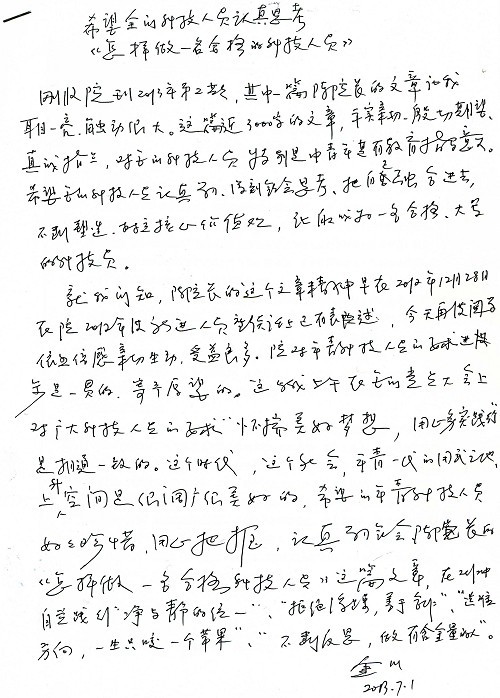 希望全所科技人员认真思考
《怎样做一名合格的科技人员》
刚收院刊2013年第2期，其中一篇阴院长的文章让我
耳目一亮、触动很大。这篇近3000字的文章，平实亲切、殷切期望、
真诚，对全所科技人员特别是中青年是有教育指导意义。
希望全所科技人员认真学习、深刻领会思考、把自己融合进去，
不断塑造、核心价值观，做一名合格、大气
的科技人员。
就我所知，阴院长的这个文章精神早在2012年12月28日
在院2012年度新进人员座谈会上已有表述，今天再次阅后
依然倍感亲切生动、受益良多。院对年青科技人员的要求进步
是一贯的、寄予厚望的。这与我上午在全所党员大会上
对广大科技人员的要求“怀揣美好梦想，用心务实践行”
是相通一致的。这个时代，这个社会，年青一代的用武之地、
上升空间是很广很美好的，希望所年青科技人员
好好珍惜、用心把握，认真学习领会阴院长的
《怎样做一名合格科技人员》这篇文章，在工作中
自觉践行“净与静的统一”、“拒绝浮躁，勇于创新”、“选准
方向，一生只咬一个苹果”、“不断反思，做有含金量的人”。
2013.7.1